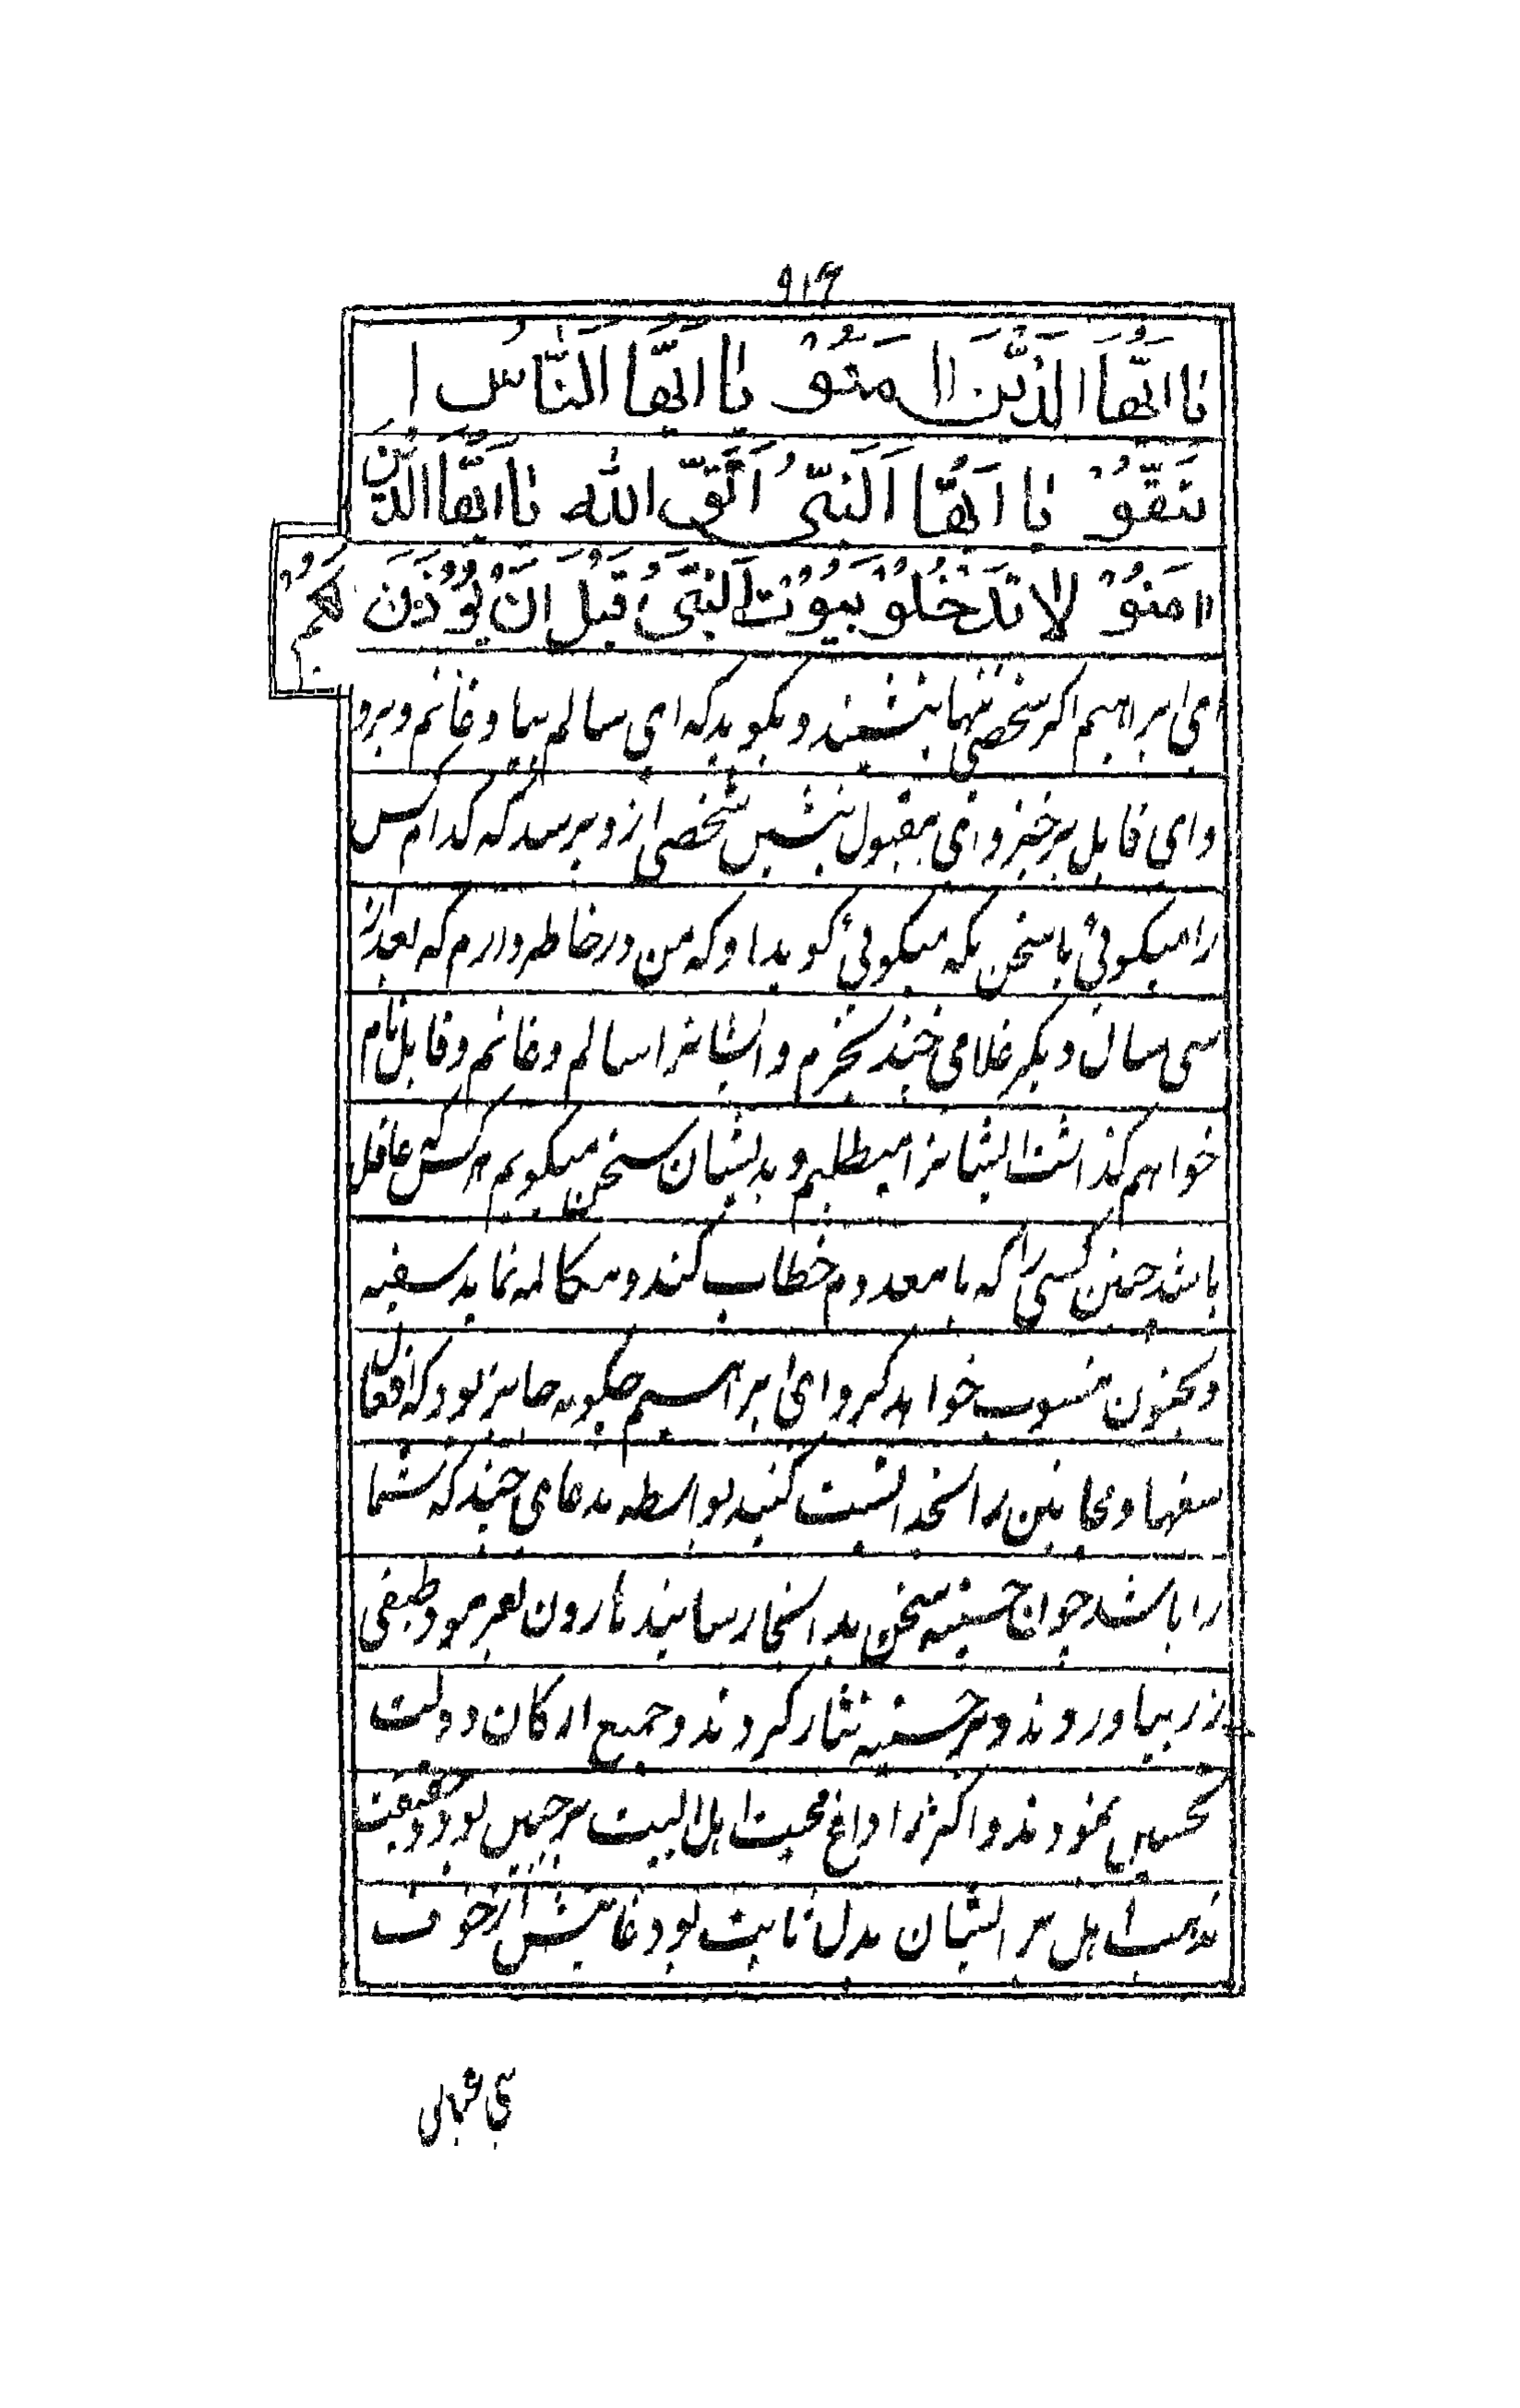 ۹۱۶
یا ایّها الَّذینَ اامَنوُ یا ایّها النّاسُ ا
تَتقّوُ یا ایّهَا اَلنَبّیُ اَتَّقِّ الله یا ایّها الذینَ
اامَنوُ لا تَدخُلوُ بیُوُتَ اَلنبّیُ قَبْل اَنْ یُوُذَنَ لَکُمُ
ای ابراهیم اکر سخصی تنها بنشیند و بکوید که ای سالم بیا و غانم و برو
وای قابل برخیز وای مقبول بنشین شخصی ازو برسد که کدام کس
را میکوئی با سخن بکه میکوئی کوید او که من در خاطر دارم که بعد از
سی سال دیکر غلامی چند بخرم و ایشانرا سالم و غانم و قابل نام
خواهم کذاشت ایشانرا میطلبم و بدیشان سخن میکویم هرکس عاقل
باشد چنین کسی را که با معدوم خطاب کند و مکالمه نماید سفیه
و بجنون منسوب خواهد کرد ای ابراهیم چکونه جایز بود که افعال
سفها و مجانین را بخدا نسبت کنید بواسطه مدعای چند که شما
را باشد چون حسنیه سخن بدانجا رسانید هارون بفرمود طبقی
زر بیاوردند و برحسنیه نثار کردند و جمیع ارکان دولت
تحسین نمودند و اکثر را داغ محبت اهل البیت برجبین بود و حقیقت
مذهب اهل بر ایشان مدل ثابت بود غایتش از خوف
بنی عباس